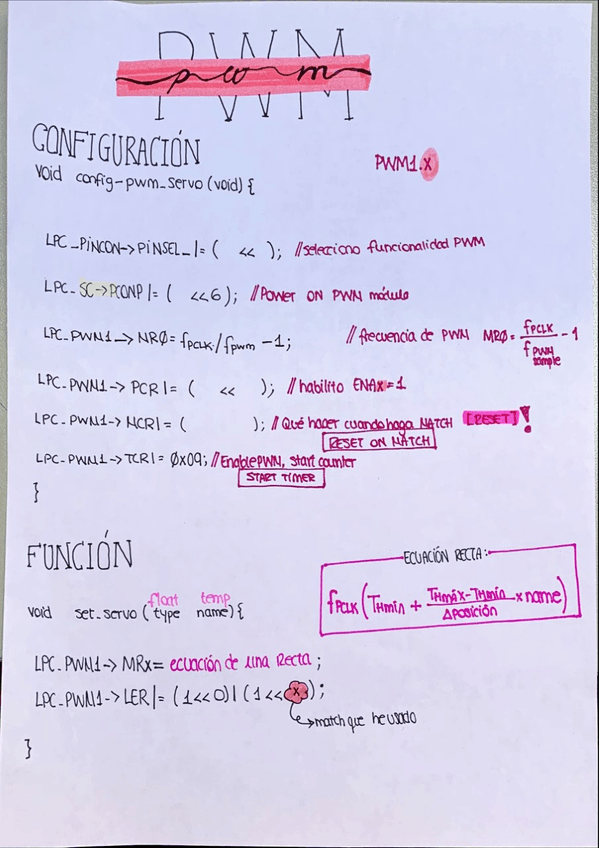 PWM
pwm
CONFIGURACIÓN
PWM1.x
void config-pwm_servo (void) {
LPC_PINCON->PINSEL_|= ( << ); //selecciono funcionalidad PWM
LPC_SC->PCONP|= ( <<6); //Power ON PWM módulo
LPC_PWM1->MR0= fPCLK/fpwm -1; //frecuencia de PWM MR0= fPCLK/fPWM sample - 1
LPC_PWM1->PCR|= ( << ); //habilito ENAx=1
LPC_PWM1->MCR|= ( ); //Qué hacer cuando haga MATCH [RESET]!
RESET ON MATCH
LPC_PWM1->TCR|= 0x09; //Enable PWM, start counter
START TIMER
}
FUNCIÓN
ECUACIÓN RECTA:
fPCLK (THmín + THmáx-THmín/Δposición x name)
float temp
void set_servo (type name) {
LPC_PWM1-> MRx= ecuación de una recta ;
LPC_PWM1->LER|= (1<<0)|(1<<x);
↳match que he usado
}